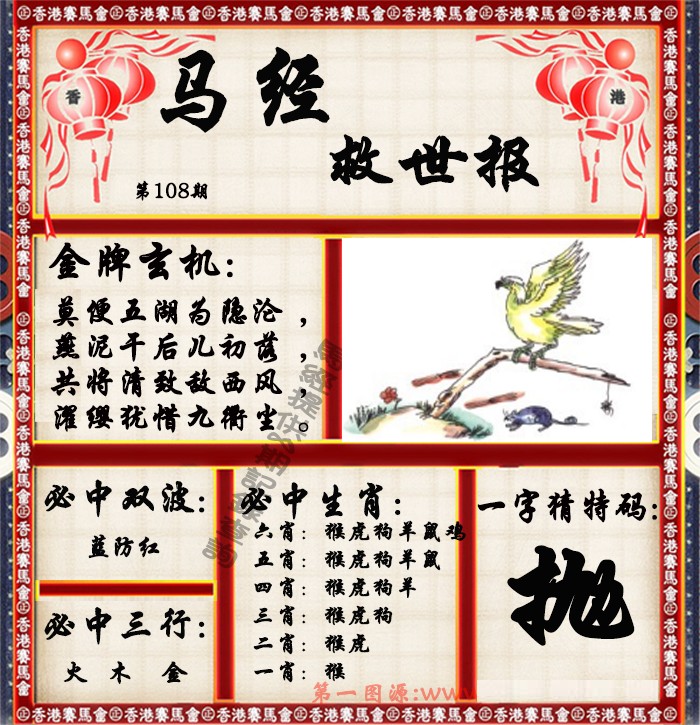 香港賽馬會
香
港
马经
救世报
第108期
金牌玄机:
莫便五湖为隐沦，
燕泥干后几初落，
共将清致敌西风，
濯缨犹惜九衢尘。
必中双波:
蓝防红
必中三行:
火 木 金
必中生肖:
六肖: 猴虎狗羊鼠鸡
五肖: 猴虎狗羊鼠
四肖: 猴虎狗羊
三肖: 猴虎狗
二肖: 猴虎
一肖: 猴
一字猜特码:
抛
第一图源:www